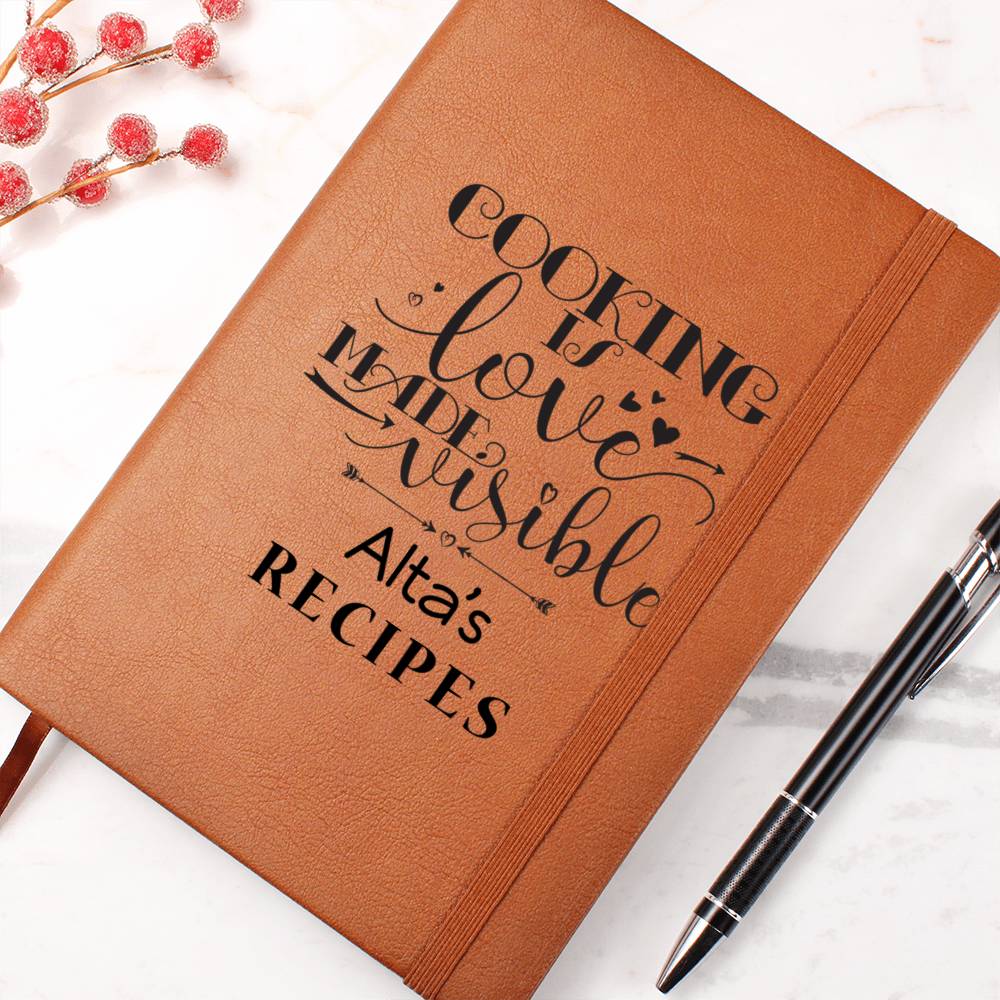 COOKING
IS
love
MADE
visible
Alta's
RECIPES